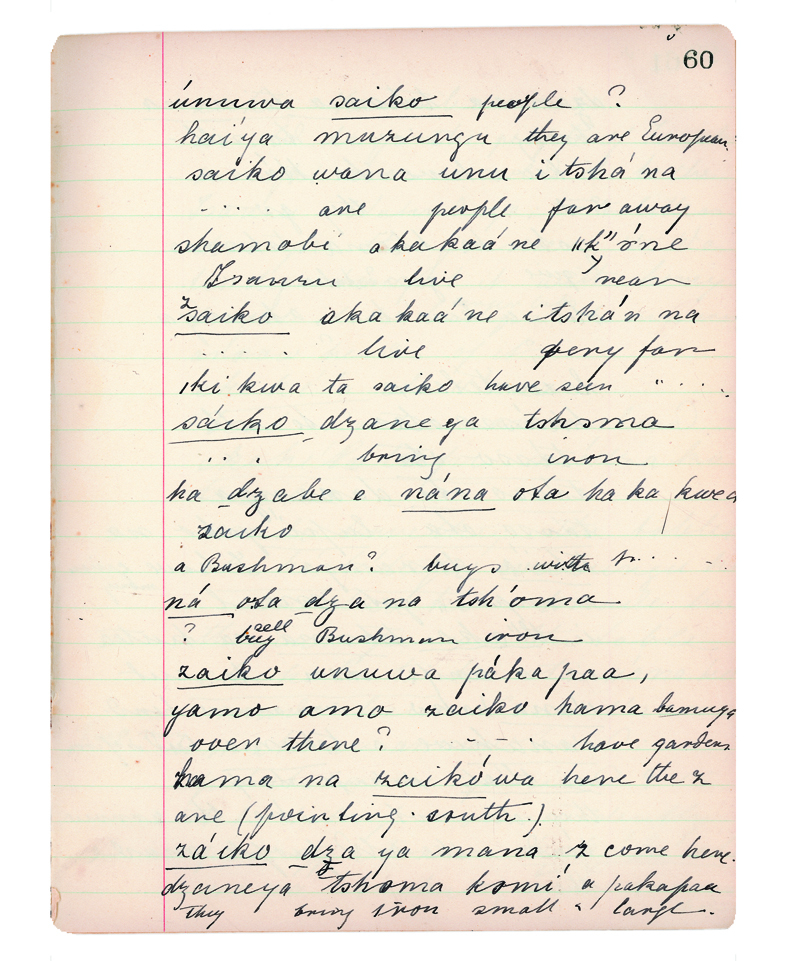 60
únuwa saiko people ?
hai'ya muzungu they are European.
saiko wana unu itshá na
. . . . are people far away
shamobi akakaáne "k" óne
Isanzu live near
saiko akakaá ne itshán na
. . . . . live very far
iki kwa ta saiko have seen " . . . .
sáiko dzanega tshoma
. . . bring iron
ha dzabe e nána ota ha ka kwea
zaiko
a Bushman? buys with tr. . .
ná ota dza na tsh'oma
? sell Bushman iron
zaiko unuwa pákapaa,
yamo amo zaiko hama bamuga
over there? - - . have gardens
hama na zaikówa here the z
are (pointing south.)
záiko dza ya mana z come here.
dzaneya tshoma komi a pakapaa
They bring iron small & large.